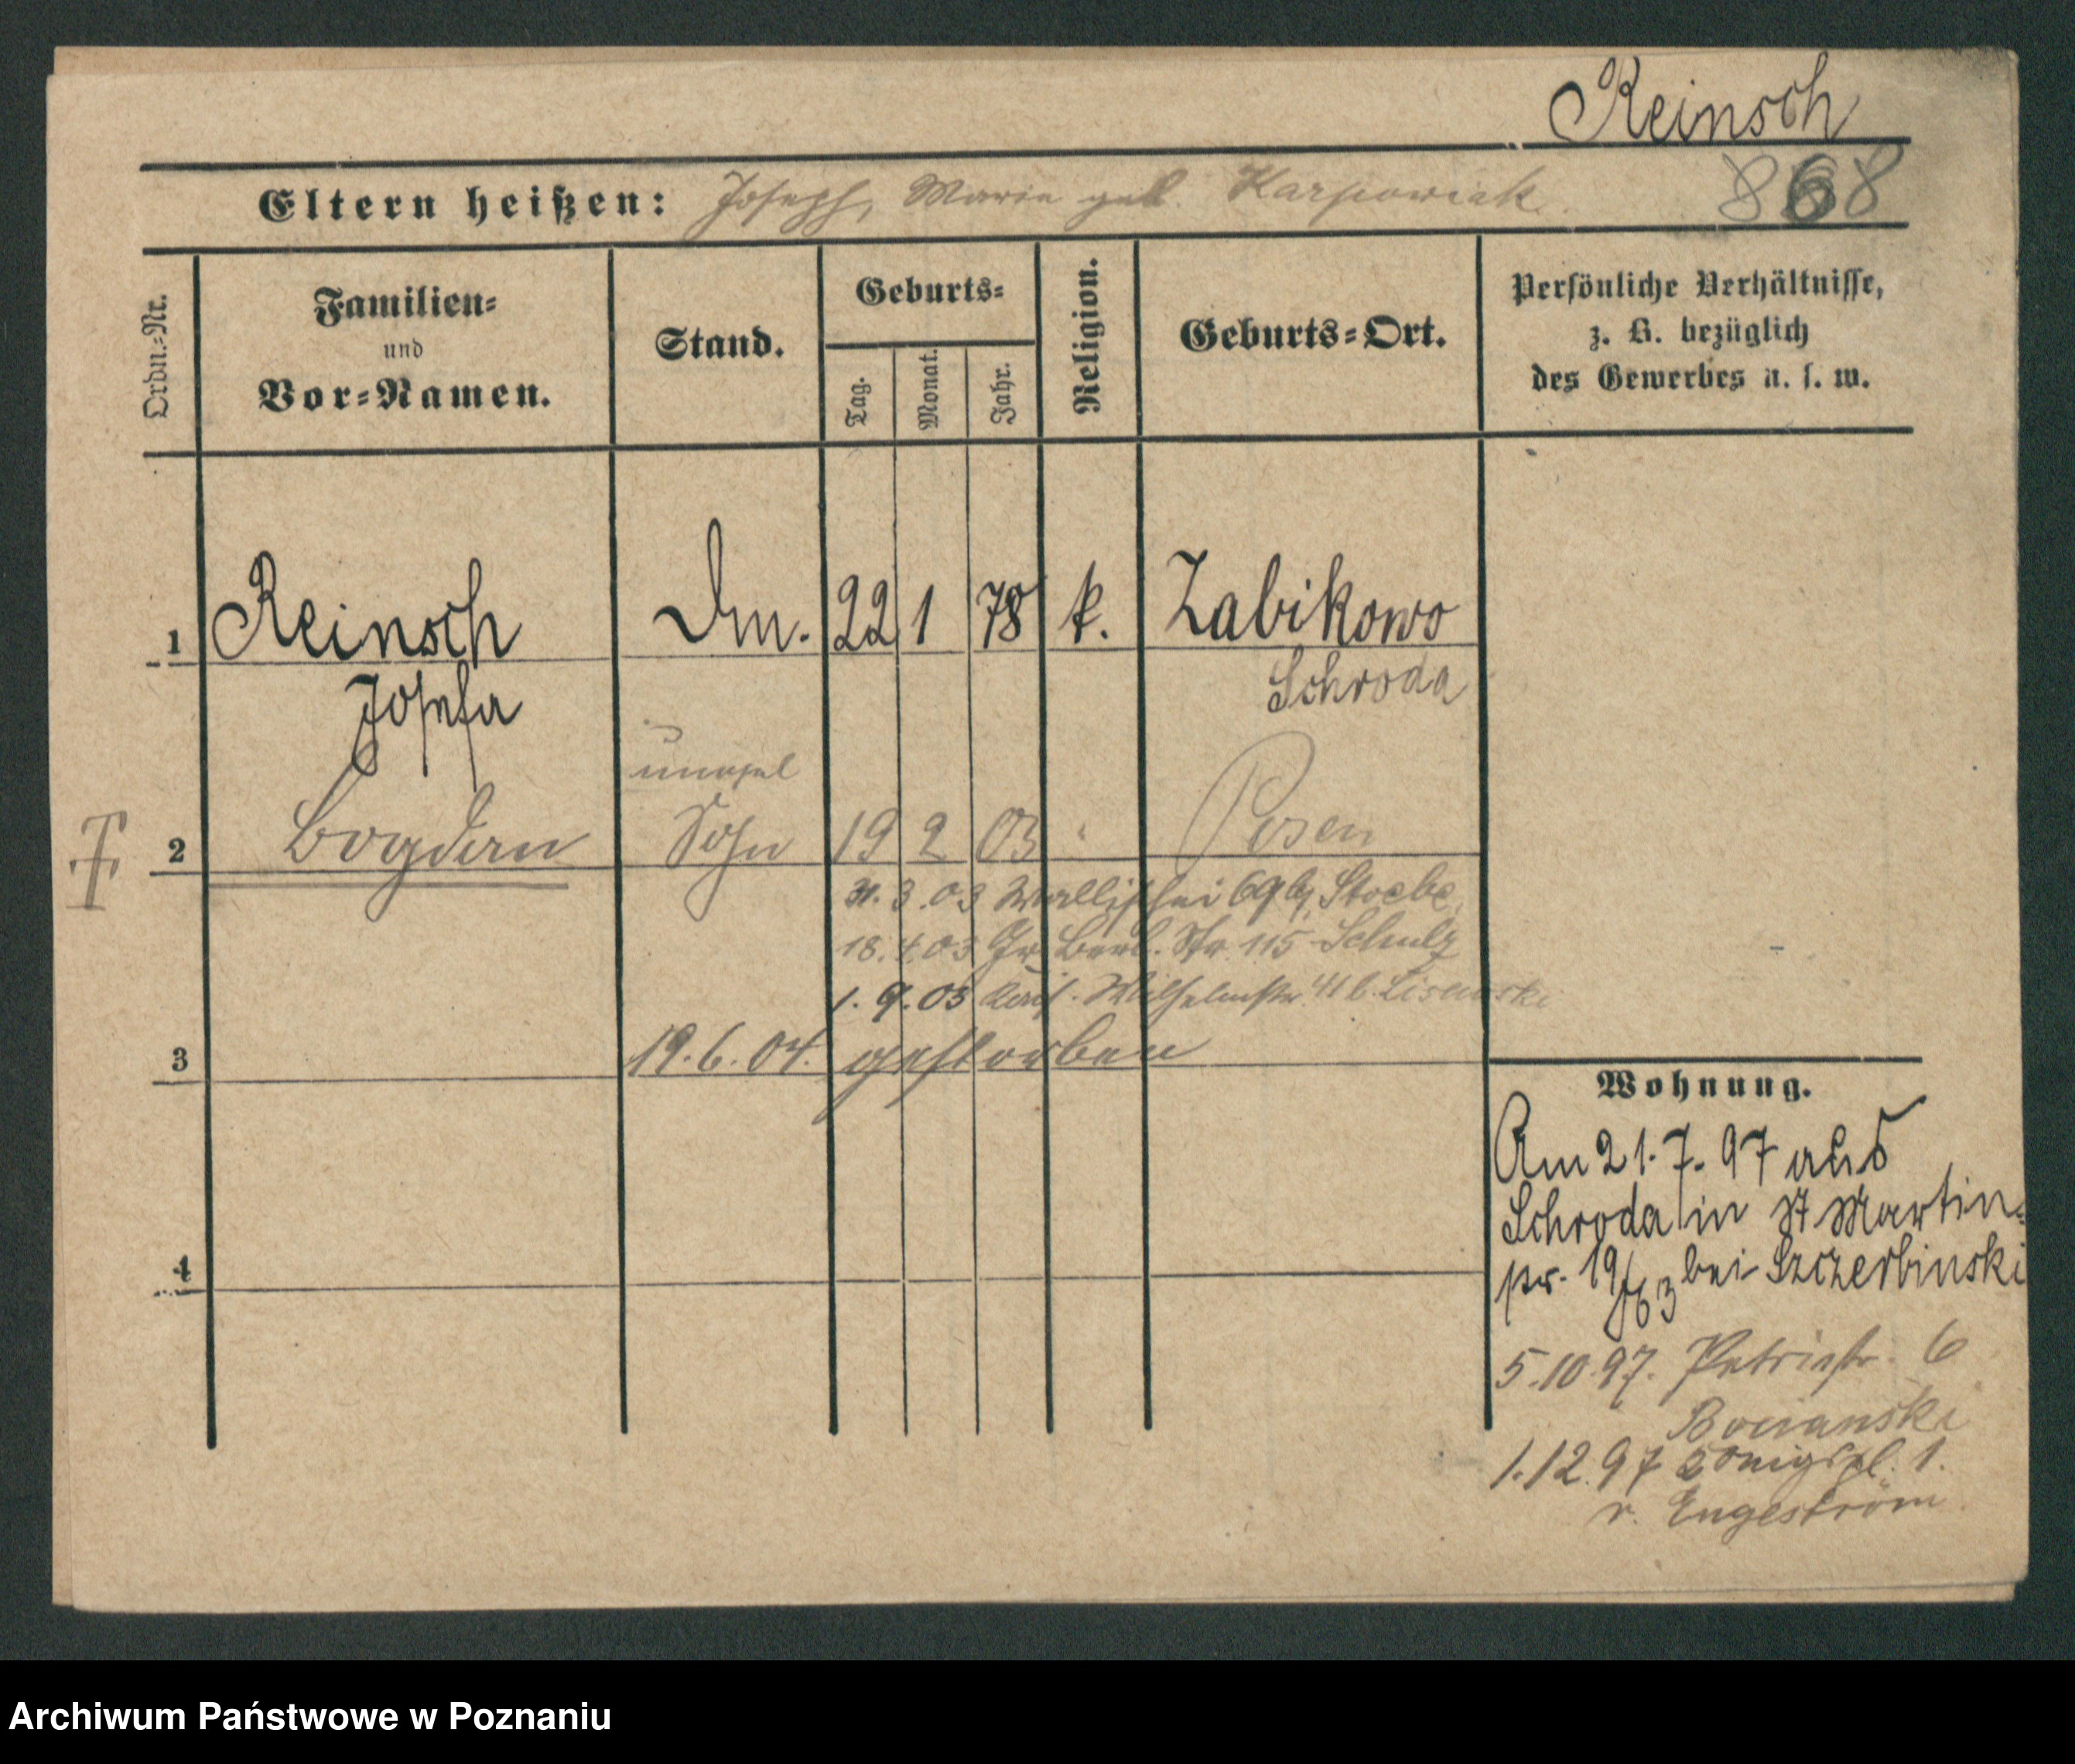 Reinsch
Eltern heißen: Joseph, Marie geb. Karpowiak. 868
Ordn.-Nr.
Familien-
und
Vor-Namen.
Stand.
Geburts-
Tag.
Monat.
Jahr.
Religion.
Geburts-Ort.
Persönliche Verhältnisse,
z. B. bezüglich
des Gewerbes u. s. w.
1 Reinsch Dm. 22 1 78 k. Zabikowo
Josefa Schroda
unehel
2 Bogdan Sohn 19 2 03 " Posen
31. 3. 03 Wallischei 69 b/ Stoebe
18. 4. 03 Gr. Berl. Str. 115 Schulz
1. 9. 03 Wilhelmstr. 41 b.
3 19. 6. 04. gestorben
Wohnung.
Am 21. 7. 97 aus
Schroda in St Martin-
str. 19 bei Szczerbinski
4
5. 10. 97. Petristr. 6
Bocianski
1. 12. 97 Königspl. 1.
v. Engeström
Archiwum Państwowe w Poznaniu